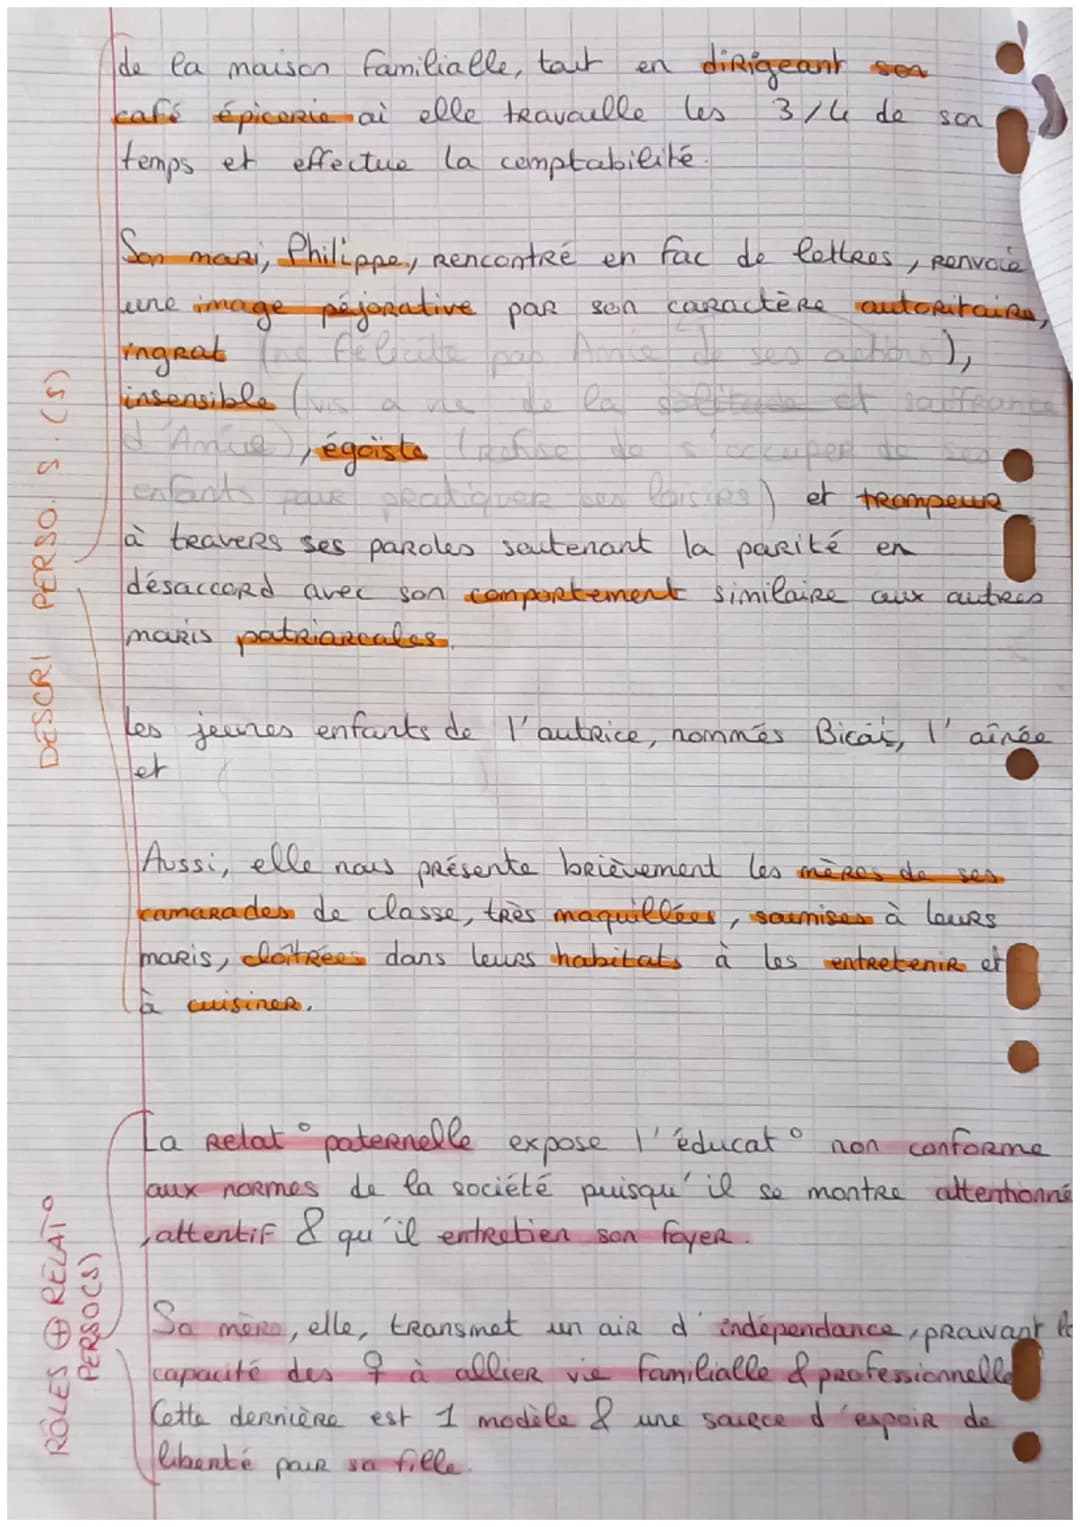 de la maison familialle, tout en dirigeant son
café épicerie où elle travaille les 3/4 de son
temps et effectue la comptabilité.
Son mari, Philippe, rencontré en fac de lettres, renvoie
une image péjorative par son caractère autoritaire,
ingrat (ne félicite pas Annie de ses actions),
insensible (vis a vie de la solitude et souffrance
d'Annie), égoïste (refuse de s'occuper de ses
enfants pour pratiquer ses loisirs) et trompeur
à travers ses paroles soutenant la parité en
désaccord avec son comportement similaire aux autres
maris patriarcales.
DESCRI PERSO. S. (S)
Les jeunes enfants de l'autrice, nommés Bicou, l'aînée
et
Aussi, elle nous présente brièvement les mères de ses
camarades de classe, très maquillées, soumises à leurs
maris, cloîtrées dans leurs habitats à les entretenir et
à cuisiner.
La relat° paternelle expose l'éducat° non conforme
aux normes de la société puisqu'il se montre attentionné
, attentif & qu'il entretien son foyer.
RÔLES ⊕ RELAT°
PERSO(S)
Sa mère, elle, transmet un air d'indépendance, prouvant la
capacité des ♀ à allier vie familialle & professionnelle
Cette dernière est 1 modèle & une source d'espoir de
liberté pour sa fille.